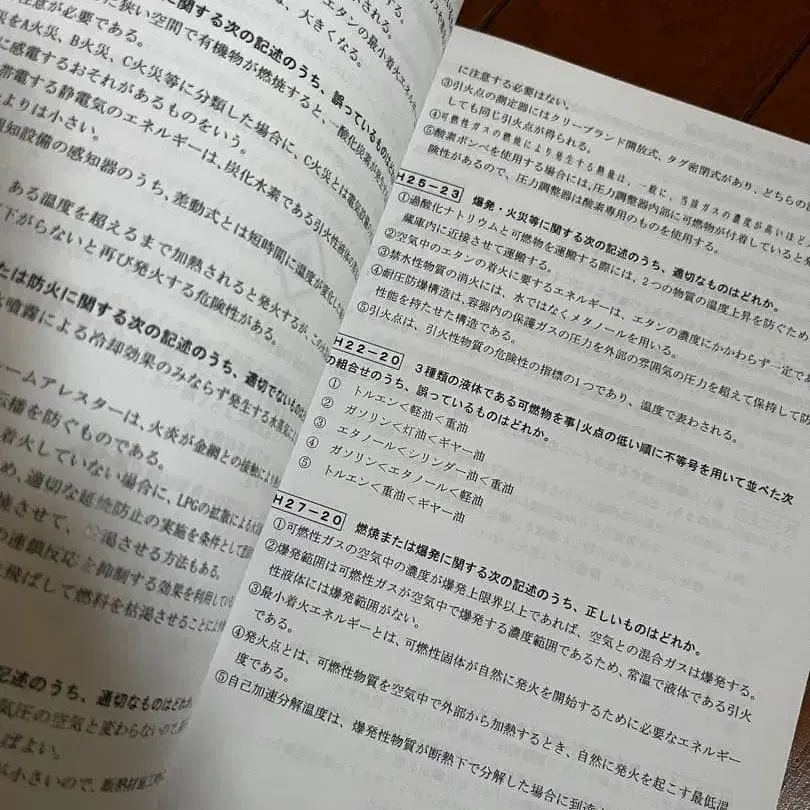 意が必要である。
に関する次の記述のうち、誤っているものは
狭い空間で有機物が燃焼すると、一酸化炭素が
災をA火災、B火災、C火災等に分類した場合に、C火災とは電気
に感電するおそれがあるものをいう。
帯電する静電気のエネルギーは、炭化水素である引火性液体の
よりは小さい。
知設備の感知器のうち、差動式とは短時間に温度が変化し
ある温度を超えるまで加熱されると発火するが、この
下がらないと再び発火する危険性がある。
たは防火に関する次の記述のうち、適切でないものは
水噴霧による冷却効果のみならず発生する水蒸気に
ームアレスターは、火炎が金網との接触により
伝播を防ぐものである。
着火していない場合に、LPGの拡散による
め、適切な延焼防止の実施を条件として
焼させて、枯渇させる方法もある。
の連鎖反応を抑制する効果を利用してい
飛ばして燃料を枯渇させることにより
記述のうち、適切なものはどれか
気圧の空気と変わらないので、
ばよい。
が小さいので、断熱材施工
大きくなる。
エタンの最小着火エネル
に注意する必要はない。
③引火点の測定器にはクリーブランド開放式、タグ密閉式があり、どちらの
しても同じ引火点が得られる。
④可燃性ガスの燃焼により発生する熱量は、一般に、当該ガスの濃度が高いほど
⑤酸素ボンベを使用する場合には、圧力調整器内部に可燃物が付着していると発
険性があるので、圧力調整器は酸素専用のものを使用する。
H25-23 爆発・火災等に関する次の記述のうち、適切なものはどれか。
①過酸化ナトリウムと可燃物を運搬する際には、2つの物質の温度上昇を防ぐため
蔵庫内に近接させて運搬する。
②空気中のエタンの着火に要するエネルギーは、エタンの濃度にかかわらず一定で
③禁水性物質の消火には、水ではなくメタノールを用いる。
④耐圧防爆構造は、容器内の保護ガスの圧力を外部の雰囲気の圧力を超えて保持して防
性能を持たせた構造である。
⑤引火点は、引火性物質の危険性の指標の1つであり、温度で表わされる。
H22-20 3種類の液体である可燃物を事|火点の低い順に不等号を用いて並べた次
の組合せのうち、誤っているものはどれか。
① トルエン<軽油<重油
② ガソリン<灯油<ギヤー油
③ エタノール<シリンダー油<重油
④ ガソリン<エタノール<軽油
⑤ トルエン<重油<ギヤー油
H27-20 燃焼または爆発に関する次の記述のうち、正しいものはどれか。
①可燃性ガスの空気中の濃度が爆発上限界以上であれば、空気との混合ガスは爆発する。
②爆発範囲は可燃性ガスが空気中で爆発する濃度範囲であるため、常温で液体である引火
性液体には爆発範囲がない。
③最小着火エネルギーとは、可燃性固体が自然に発火を開始するために必要なエネルギー
である。
④発火点とは、可燃性物質を空気中で外部から加熱するとき、自然に発火を起こす最低温
度である。
⑤自己加速分解温度は、爆発性物質が断熱下で分解した場合に到達